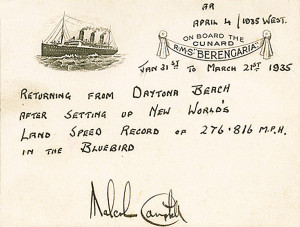 AR
APRIL 4 / 1935 WEST.
ON BOARD THE
CUNARD
R.M.S. "BERENGARIA"
JAN 31ST TO MARCH 21ST 1935
RETURNING FROM DAYTONA BEACH
AFTER SETTING UP NEW WORLD'S
LAND SPEED RECORD OF 276·816 M.P.H.
IN THE BLUEBIRD
Malcolm Campbell